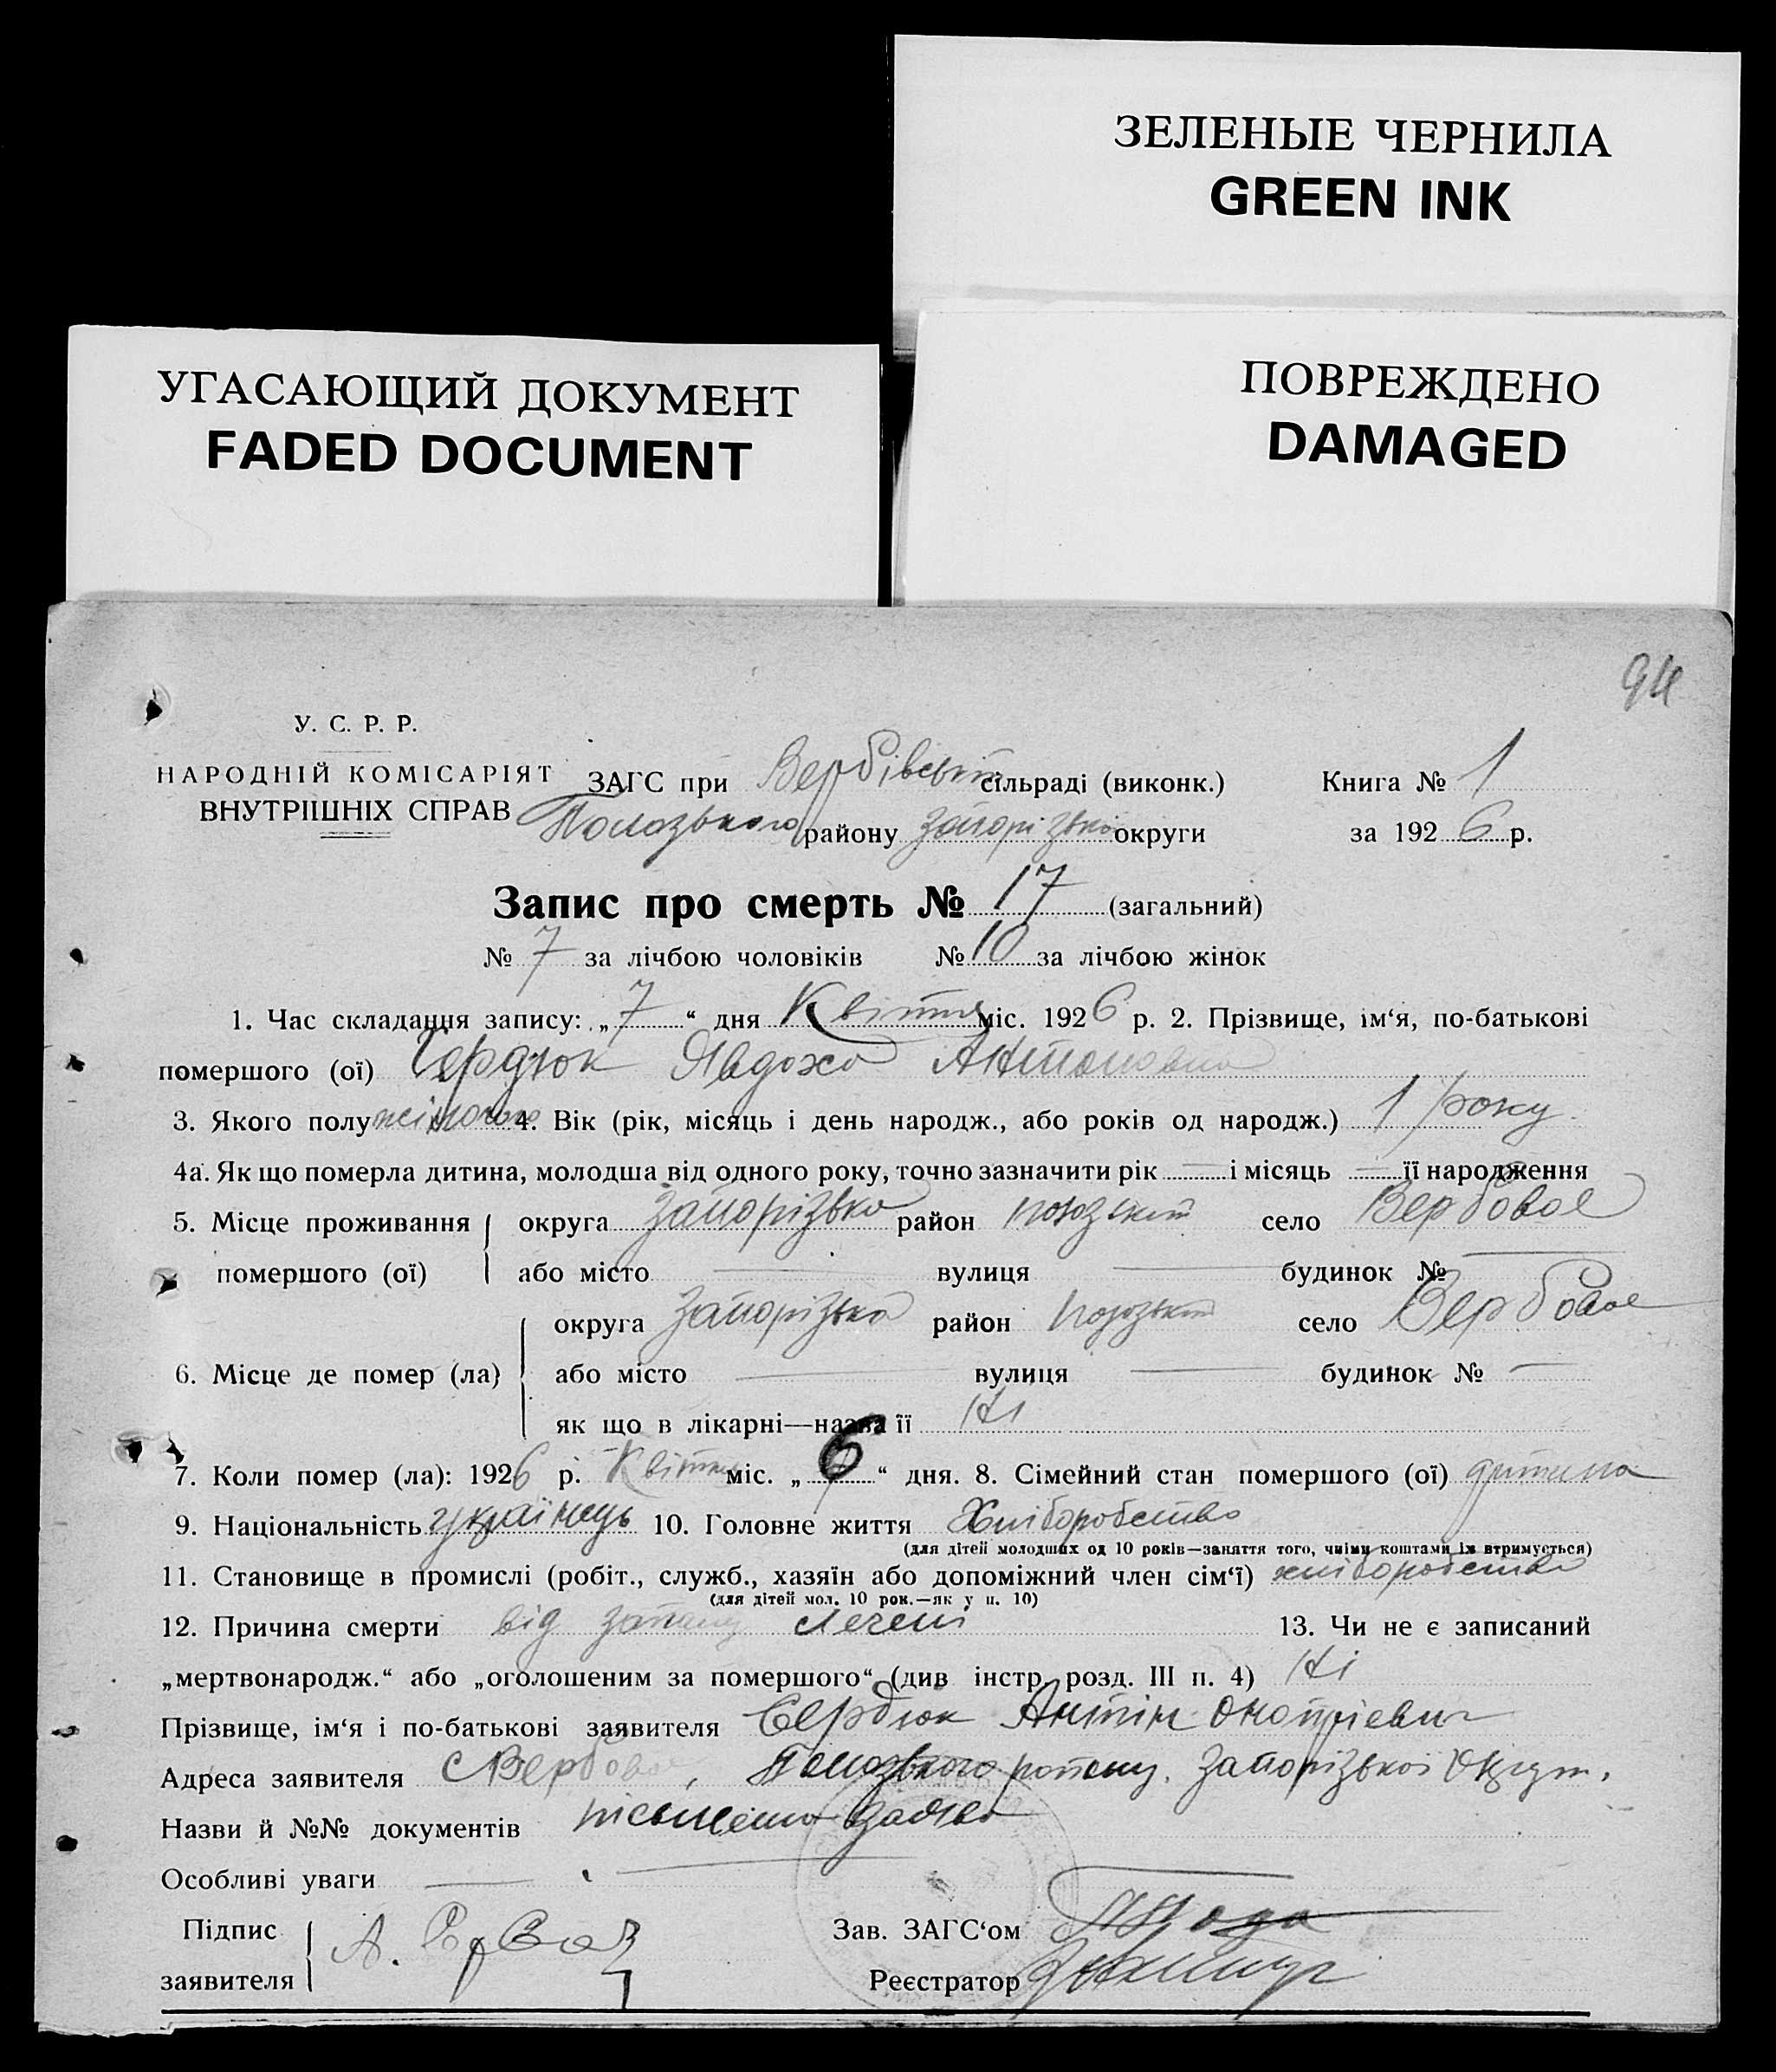 ЗЕЛЕНЫЕ ЧЕРНИЛА
GREEN INK
УГАСАЮЩИЙ ДОКУМЕНТ
FADED DOCUMENT
ПОВРЕЖДЕНО
DAMAGED
94
У. С. Р. Р.
НАРОДНІЙ КОМІСАРІЯТ
ВНУТРІШНІХ СПРАВ
ЗАГС при Вербівській сільраді (виконк.) Книга № 1
Пологзького району Запорізької округи за 1926 р.
Запис про смерть № 17 (загальний)
№ 7 за лічбою чоловіків № 10 за лічбою жінок
1. Час складання запису: „7“ дня Квітня міс. 1926 р. 2. Прізвище, ім‘я, по-батькові
помершого (ої) Сердюк Явдоха Антоновна
3. Якого полу жіночого 4. Вік (рік, місяць і день народж., або років од народж.) 1 року
4а. Як що померла дитина, молодша від одного року, точно зазначити рік — і місяць — її народження
5. Місце проживання помершого (ої) округа Запорізька район село Вербовое
або місто — вулиця — будинок № —
6. Місце де помер (ла) округа Запорізька район село Вербовое
або місто — вулиця — будинок № —
як що в лікарні—назва її Ні
7. Коли помер (ла): 1926 р. Квітня міс. „6“ дня. 8. Сімейний стан помершого (ої) дитина
9. Національність українець 10. Головне життя Хліборобство
(для дітей молодших од 10 років—заняття того, чиїми коштами їх втримується)
11. Становище в промислі (робіт., служб., хазяїн або допоміжний член сім‘ї) хліборобство
(для дітей мол. 10 рок.—як у п. 10)
12. Причина смерти від 13. Чи не є записаний
„мертвонародж.“ або „оголошеним за помершого“ (див інстр. розд. III п. 4) Ні
Прізвище, ім‘я і по-батькові заявителя Сердюк Антін
Адреса заявителя с Вербове, району, Запорізької Округи.
Назви й №№ документів заява
Особливі уваги —
Підпис заявителя А.
Зав. ЗАГС‘ом
Реєстратор